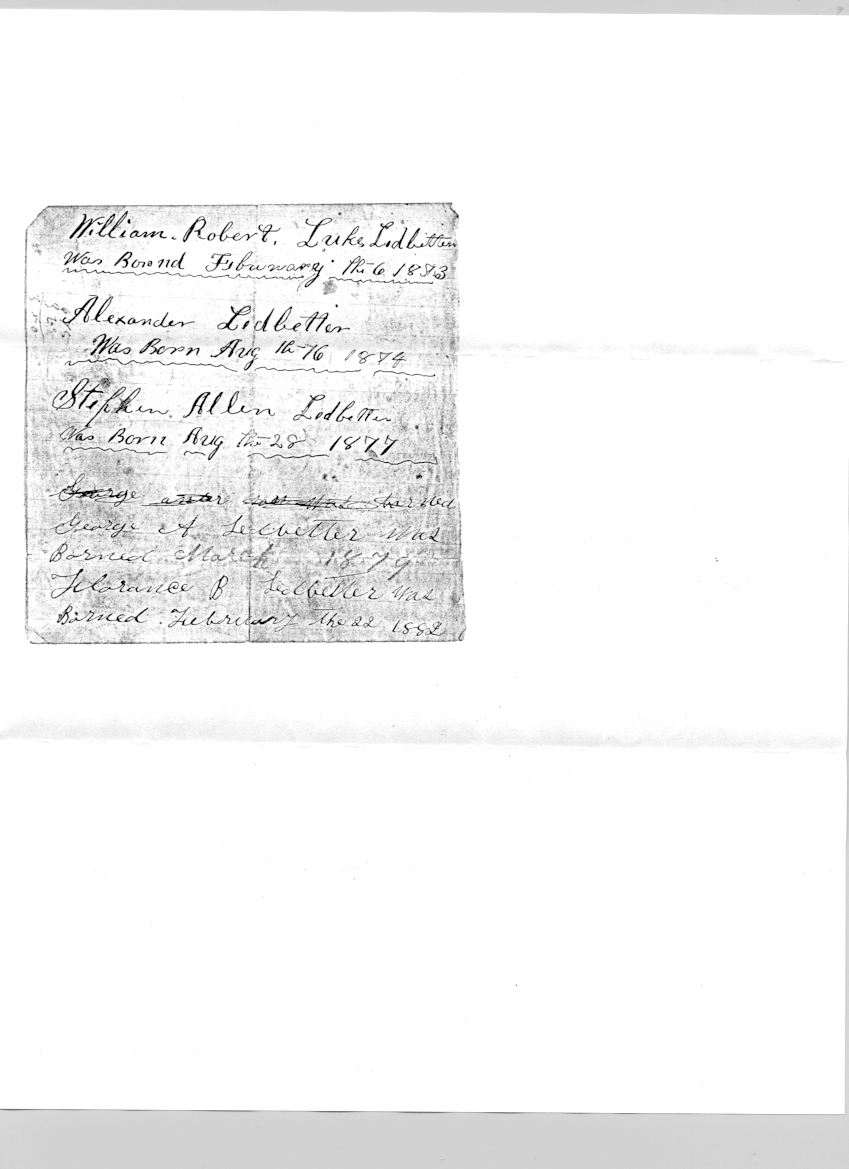 William. Robert. Luke Ledbetter
Was Bornd Feburary the 6 1873
Alexander Ledbetter
Was Born Aug th 16 1874
Stephen. Allen Ledbetter
Was Born Aug the 28 1877
George was borned
George A Ledbetter was
Borned March 1879
Florance B. Ledbetter was
Borned. February the 22 1882